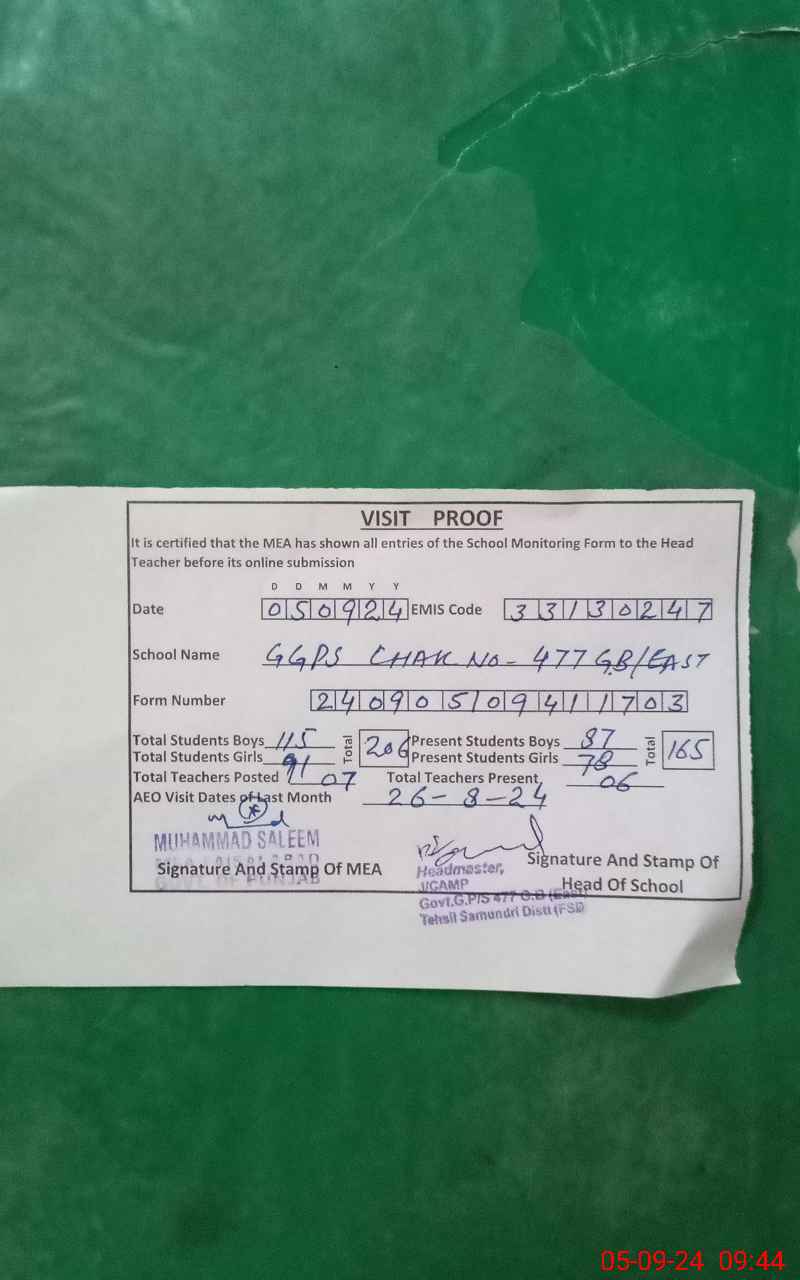 VISIT PROOF
It is certified that the MEA has shown all entries of the School Monitoring Form to the Head
Teacher before its online submission
D D M M Y Y
Date 050924 EMIS Code 33130247
School Name GGPS CHAK NO- 477 GB/EAST
Form Number 24090509411703
Total Students Boys 115 Total 206 Present Students Boys 87 Total 165
Total Students Girls 91 Present Students Girls 78
Total Teachers Posted 07 Total Teachers Present 06
AEO Visit Dates of Last Month 26-8-24
MUHAMMAD SALEEM
Signature And Stamp Of MEA
GOVT. OF PUNJAB
Signature And Stamp Of
Head Of School
Headmaster,
Govt.G.P/S 477 G.B (East)
Tehsil Samundri Distt (FSD)
05-09-24 09:44